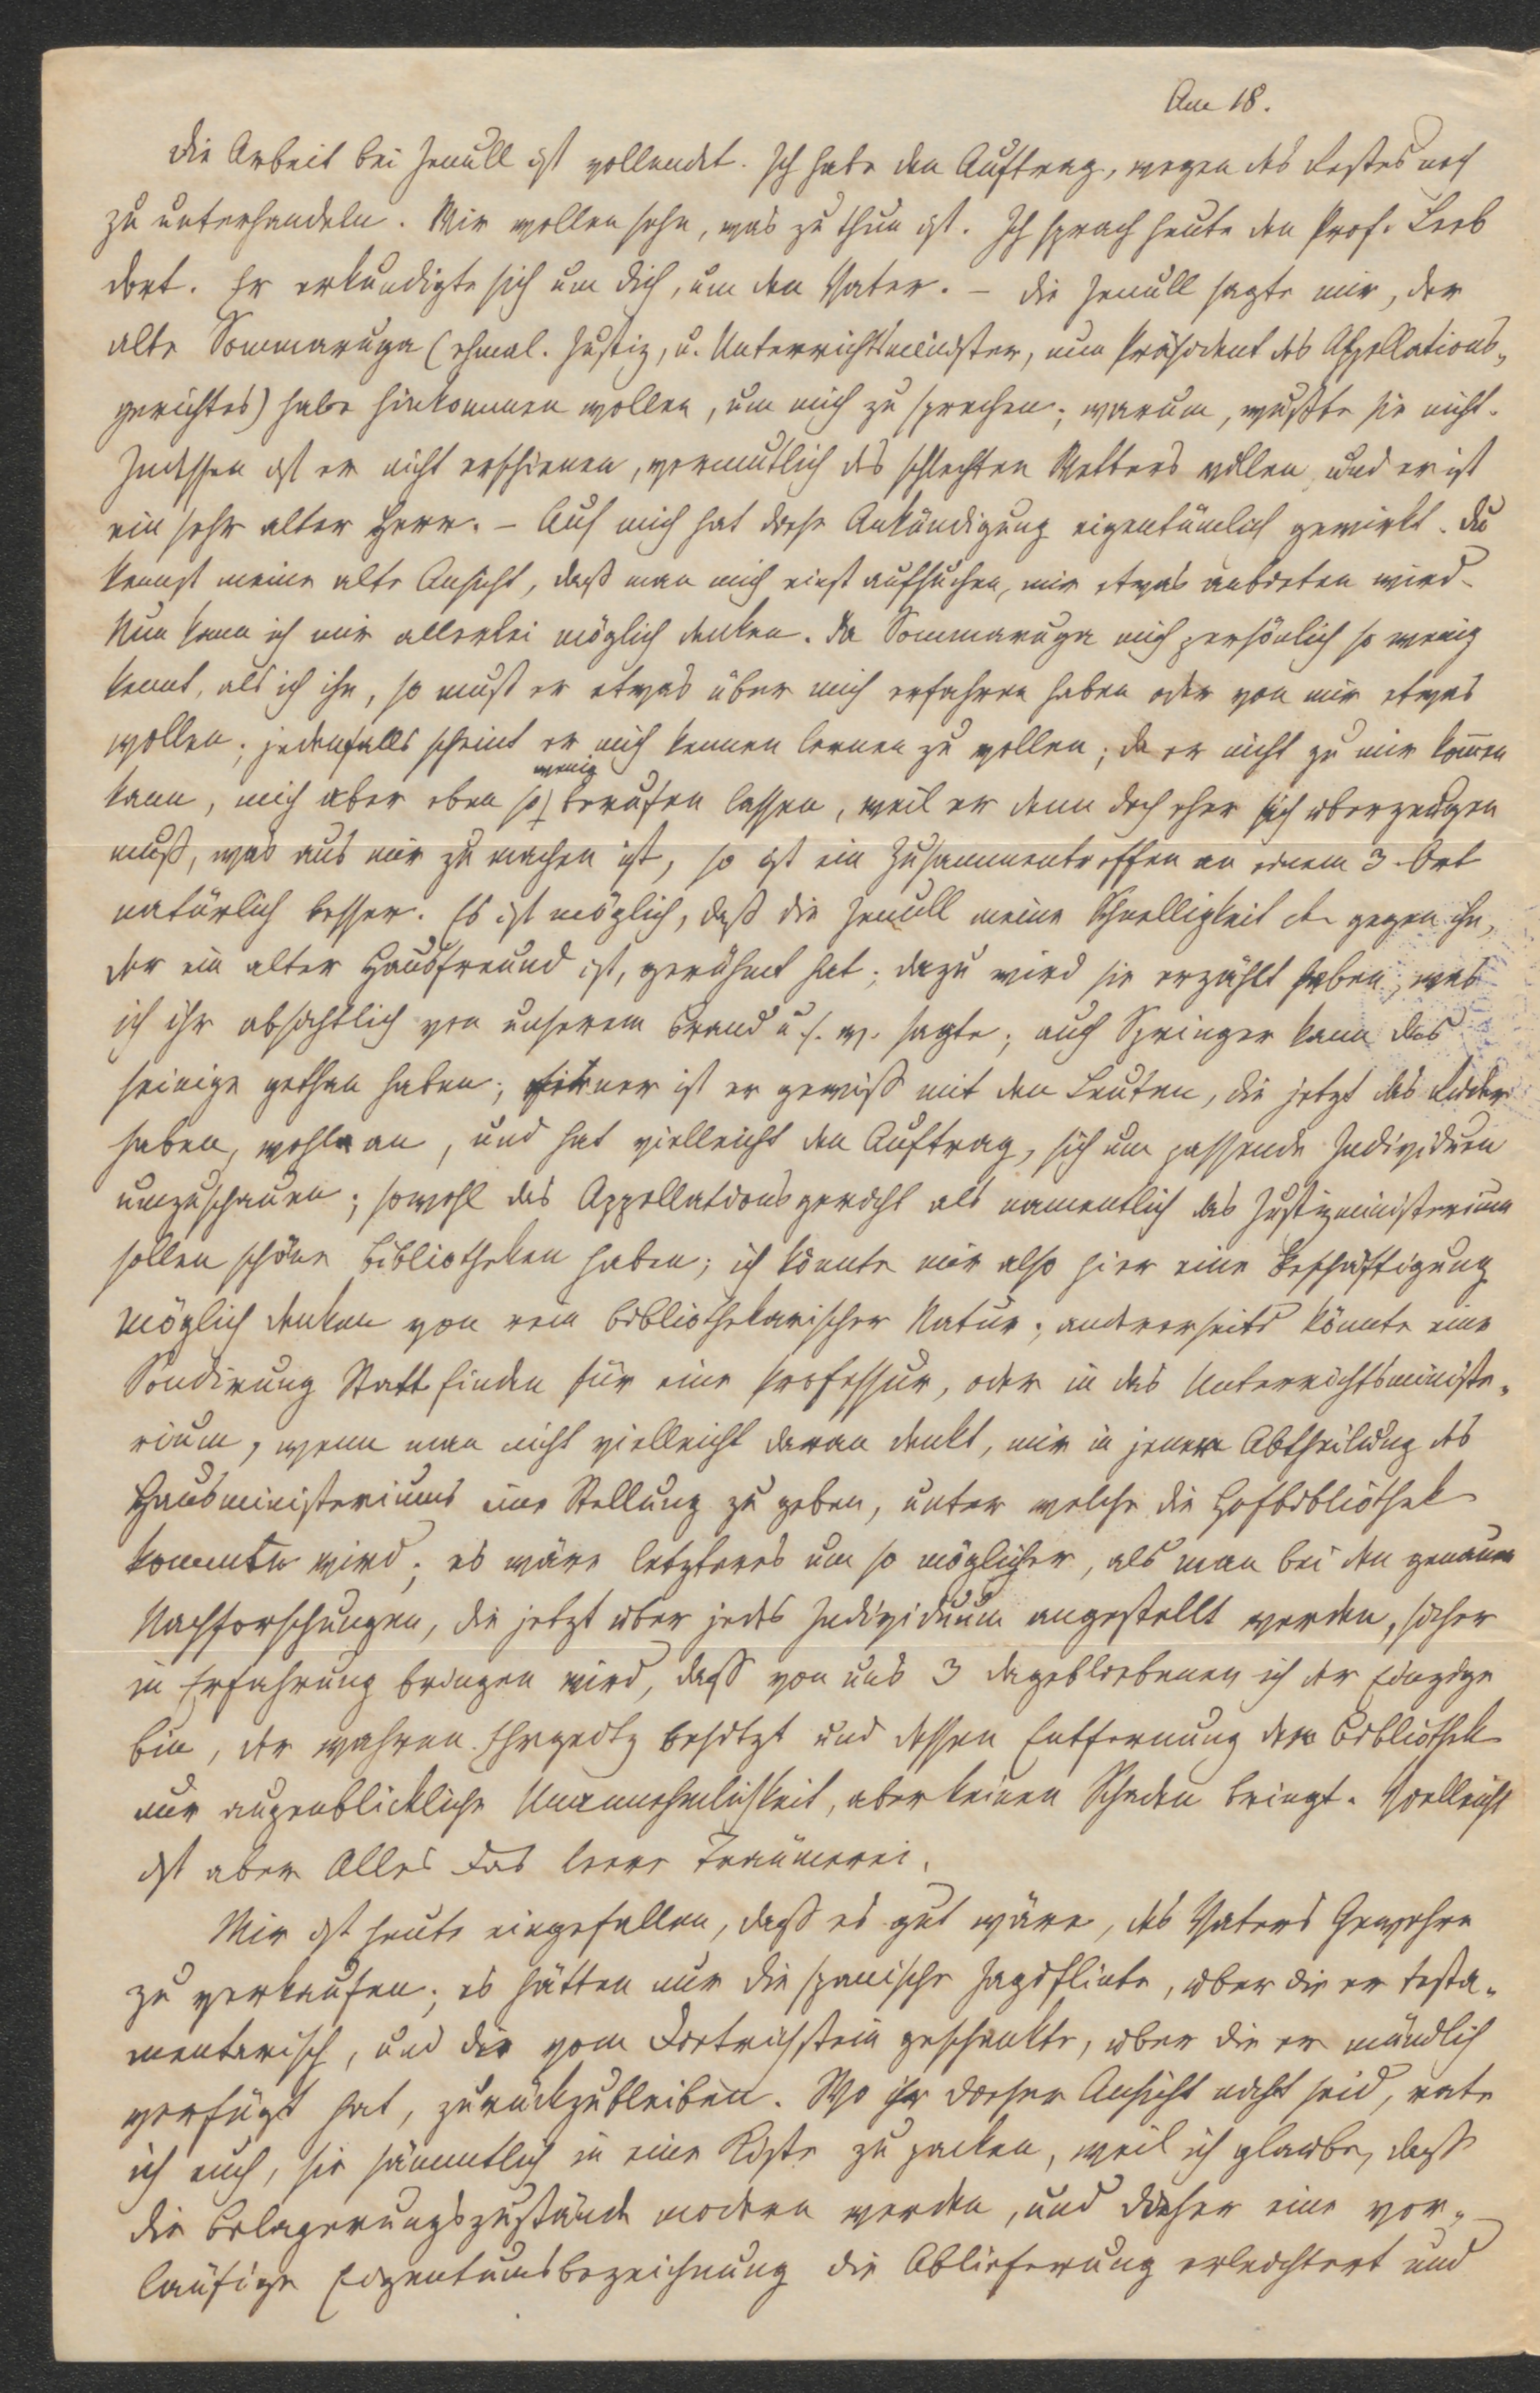 Am 18.
Die Arbeit bei Jenull ist vollendet. Ich habe den Auftrag, wegen des Restes noch
zu unterhandeln. Wir wollen sehn, was zu thun ist. Ich sprach heute den Prof. Leeb
dort. Er erkundigte sich um dich, um den Vater. – Die Jenull sagte mir, der
alte Sommaruga (ehmal. Justiz, u. Unterrichtsminister, nun Präsident des Appellations„
gerichtes) habe hinkommen wollen, um mich zu sprechen; warum, wußte sie nicht.
Indessen ist er nicht erschienen, vermutlich des schlechten Wetters willen, und er ist
ein sehr alter Herr. – Auf mich hat diese Ankündigung eigentümlich gewirkt. Du
kennst meine alte Ansicht, daß man mich einst aufsuchen, mir etwas anbieten wird.
Nun kann ich mir allerlei möglich denken. Da Sommaruga mich persönlich so wenig
kennt, als ich ihn, so muß er etwas über mich erfahren haben oder von mir etwas
wollen; jedenfalls scheint er mich kennen lernen zu wollen; da er nicht zu mir kom̄en
kann, mich aber eben so wenig berufen lassen, weil er denn doch eher sich überzeugen
muß, was aus mir zu machen ist, so ist ein Zusammentreffen an einem 3. Ort
natürlich besser. Es ist möglich, daß die Jenull meine Schnelligkeit etc gegen ihn,
der ein alter Hausfreund ist, gerühmt hat; dazu wird sie erzählt haben, was
ich ihr absichtlich von unserem Brand u. s. w. sagte; auch Springer kann das
seinige gethan haben; ferner ist er gewiß mit den Leuten, die jetzt das Ruder
haben, wohl an, und hat vielleicht den Auftrag, sich um passende Individuen
umzuschauen; sowohl das Appellationsgericht als namentlich das Justizministerium
sollen schöne Bibliotheken haben; ich könnte mir also hier eine Beschäftigung
möglich denken von rein bibliothekarischer Natur; andererseits könnte eine
Sondirung Statt finden für eine Professur, oder in das Unterrichtsministe„
rium, wenn man nicht vielleicht daran denkt, mir in jener Abtheilung des
Hausministeriums eine Stellung zu geben, unter welche die Hofbibliothek
kommen wird; es wäre letzteres um so möglicher, als man bei den genauen
Nachforschungen, die jetzt über jedes Individuum angestellt werden, sicher
in Erfahrung bringen wird, daß von uns 3 dagebliebenen ich der Einzige
bin, der wahren Ehrgeitz besitzt und dessen Entfernung der Bibliothek
nur augenblickliche Unannehmlichkeit, aber keinen Schaden bringt. Vielleicht
ist aber Alles das leere Träumerei.
Mir ist heute eingefallen, daß es gut wäre, des Vaters Gewehre
zu verkaufen; es hätten nur die spanische Jagdflinte, über die er testa„
mentarisch, und die vom Dietrichstein geschenkte, über die er mündlich
verfügt hat, zurückzubleiben. Wo ihr dieser Ansicht nicht seid, rate
ich euch, sie sämmtlich in eine Kiste zu packen, weil ich glaube, daß
die Belagerungszustände modern werden, und daher eine vor„
läufige Eigentumsbezeichnung die Ablieferung erleichtert und